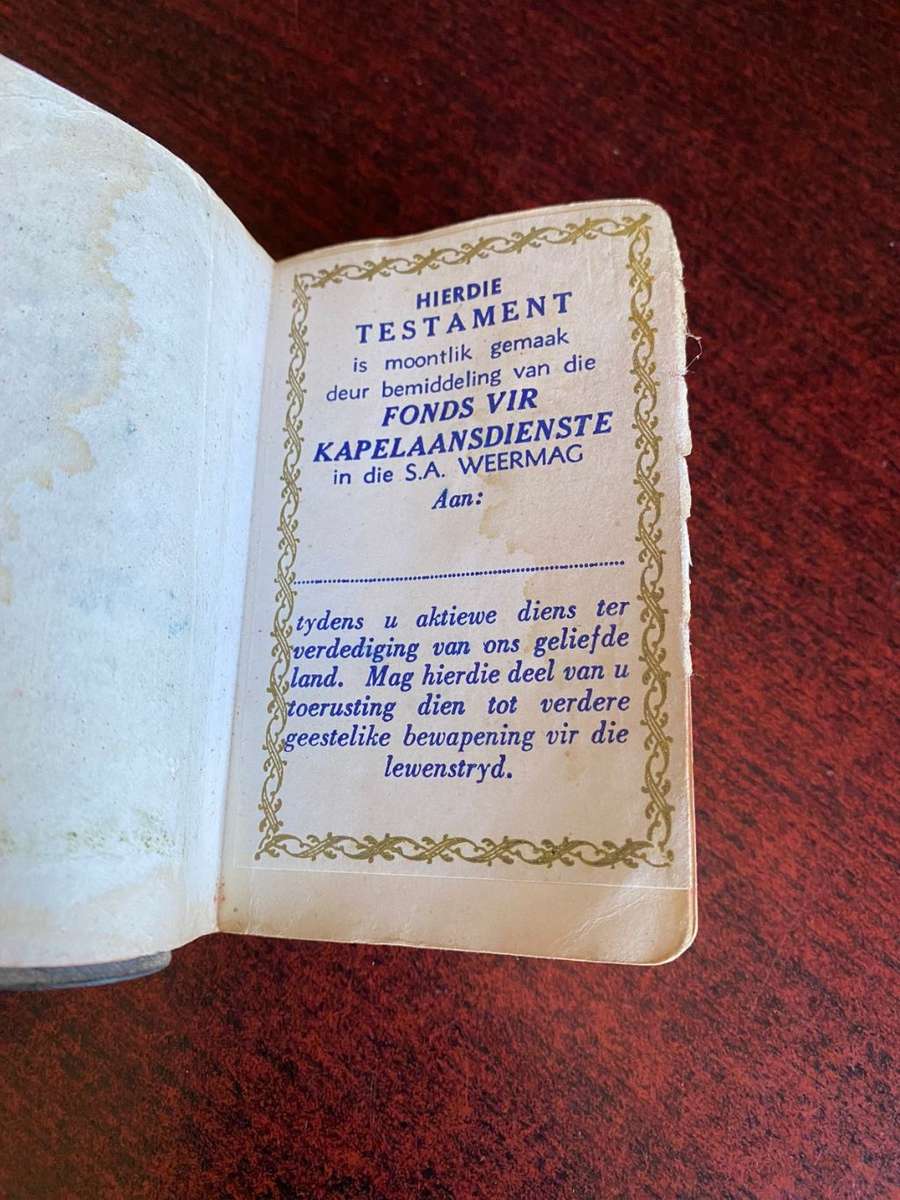 HIERDIE
TESTAMENT
is moontlik gemaak
deur bemiddeling van die
FONDS VIR
KAPELAANSDIENSTE
in die S.A. WEERMAG
Aan:
tydens u aktiewe diens ter
verdediging van ons geliefde
land. Mag hierdie deel van u
toerusting dien tot verdere
geestelike bewapening vir die
lewenstryd.